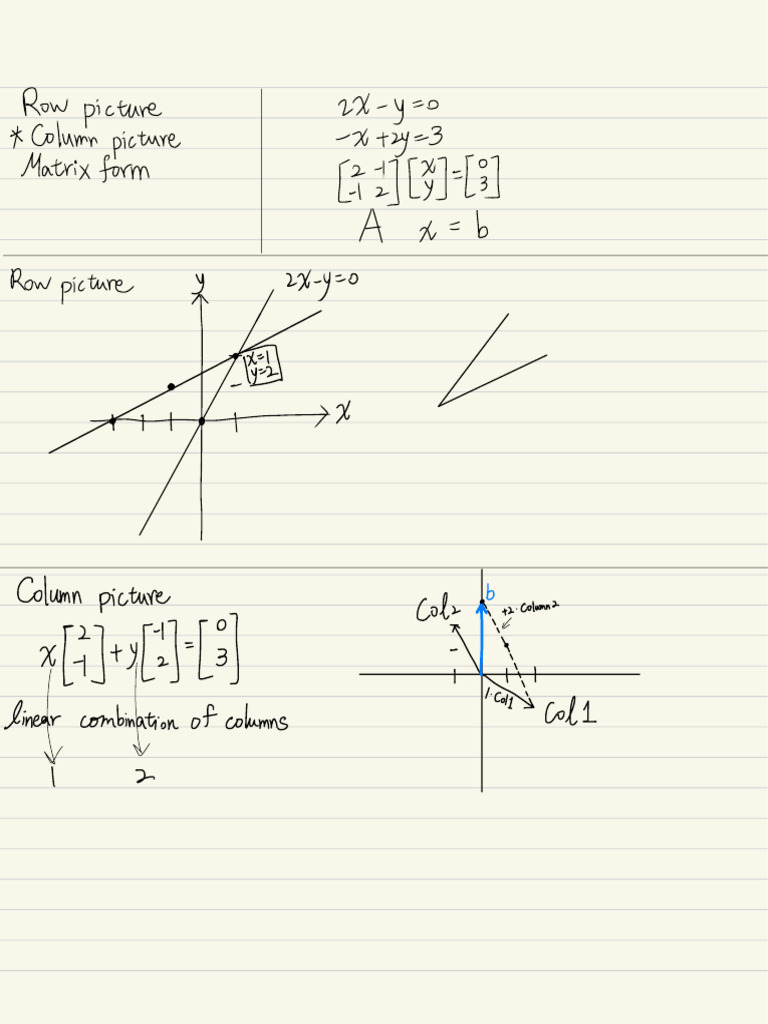 Row picture
* Column picture
Matrix form
2x - y = 0
-x + 2y = 3
[2 -1; -1 2] [x; y] = [0; 3]
A x = b
Row picture
y
2x-y=0
x=1
y=2
x
Column picture
x [2; -1] + y [-1; 2] = [0; 3]
linear combination of columns
1 2
b
Col2
+2·Column2
1·Col1
Col1